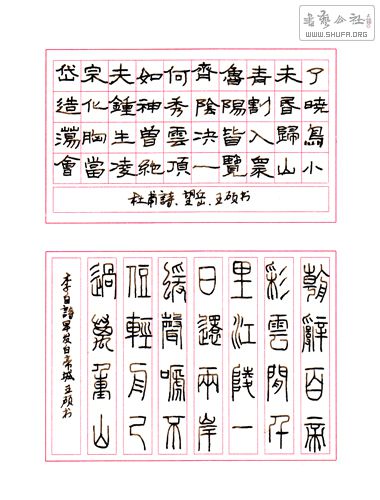 書藝公社
WWW.SHUFA.ORG
岱宗夫如何齊魯青未了
造化鍾神秀陰陽割昏曉
蕩胸生曾雲決眥入歸鳥
會當凌絕頂一覽眾山小
杜甫詩、望岳、王硕书
朝辭白帝
彩雲間千
里江陵一
日還兩岸
猨聲嗁不
住輕舟已
過萬重山
李白詩早发白帝城王硕书